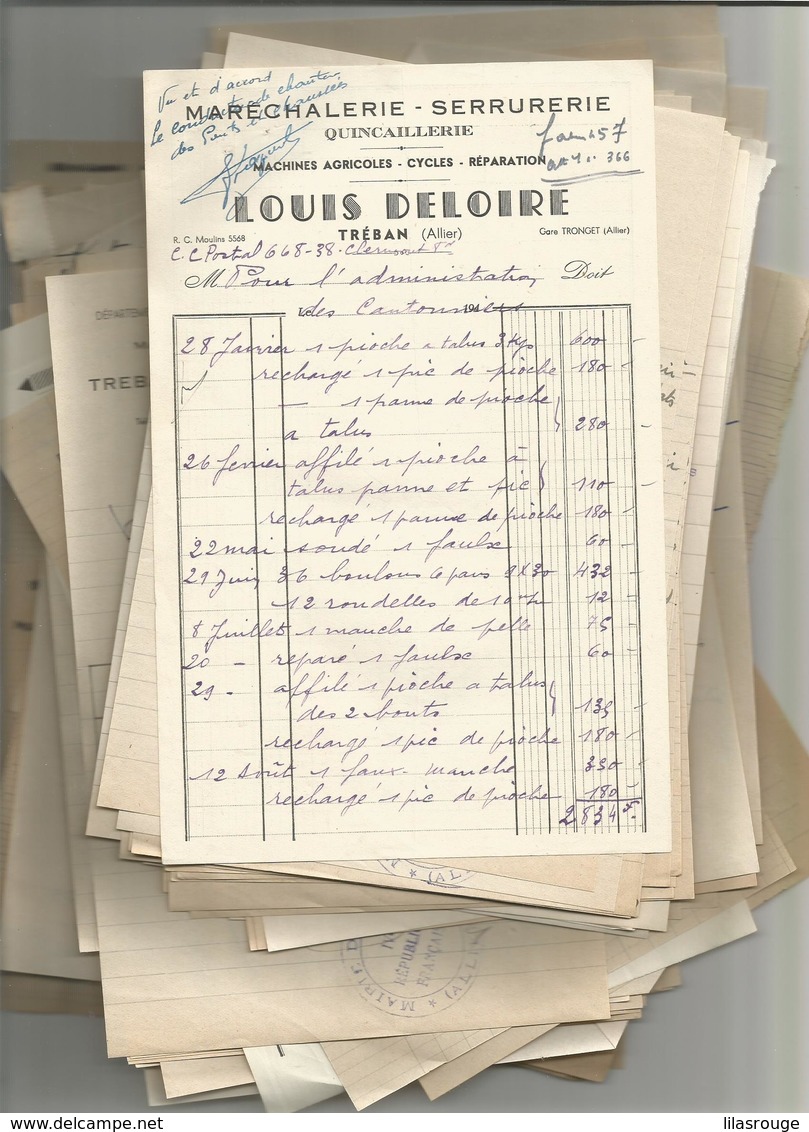 Vu et d'accord
Le conducteur de chantier
des Ponts et Chaussées
MARÉCHALERIE - SERRURERIE
QUINCAILLERIE
MACHINES AGRICOLES - CYCLES - RÉPARATION
366
LOUIS DELOIRE
R. C. Moulins 5568
TRÉBAN (Allier)
Gare TRONGET (Allier)
C. C Postal 668-38 - Clermont Fd
M Pour l'administration Doit
des Cantonniers 194
28 Janvier 1 pioche a talus 3 kgs 600 -
rechargé 1 pic de pioche 180 -
— 1 panne de pioche
a talus 280 -
26 fevrier affilé 1 pioche à
talus panne et pic 110 -
rechargé 1 panne de pioche 180 -
22 mai soudé 1 faulx 60 -
29 Juin 36 boulons 6 pans 9X30 432 -
12 rondelles de 10 m/m 12 -
8 Juillet 1 manche de pelle 75 -
20 - reparé 1 faulx 60 -
29 - affilé 1 pioche a talus
des 2 bouts 135 -
rechargé 1 pic de pioche 180 -
12 Août 1 faux manche 350 -
rechargé 1 pic de pioche 180 -
2834 F.
DÉPARTEME
TREBA
(AL
MAIRIE D
RÉPUBLI
FRANÇA
(ALLI
lilasrouge